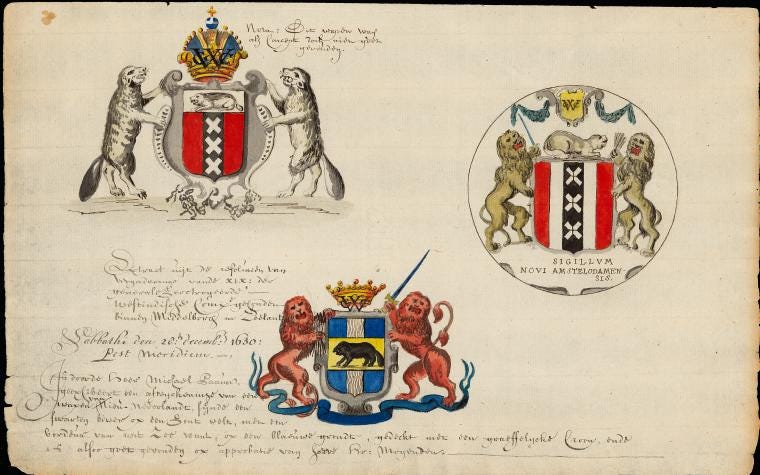 Nota: Dit waren was
als Concept doch niet goet
gevonden.
SIGILLVM
NOVI AMSTELODAMEN-
SIS.
Extract uijt de resolutien van
vande XIX: der
generale Geoctroijeerde
Westindische Comp: gehouden
binnen Middelborch in Zeelant
Sabbathi den 20en decemb: 1630:
Post Meridiem.
Heer Michael Paauw
een van een
Nieu Nederlandt, sijnde een
swarten bever op een velt, met een
van wit op een blauwe grondt, gedeckt met een graeffelijcke Croon, ende
is alsoo goet gevonden op approbatie van Ho: Mogenden.